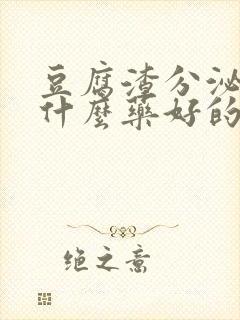 豆腐渣分泌
什麼藥好的
绝之意